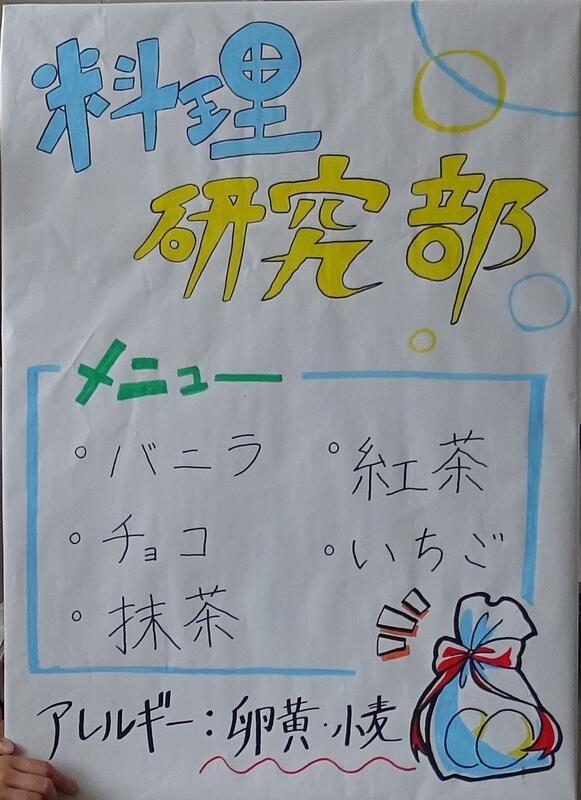 料理
研究部
メニュー
・バニラ
・チョコ
・抹茶
・紅茶
・いちご
アレルギー：卵黄・小麦